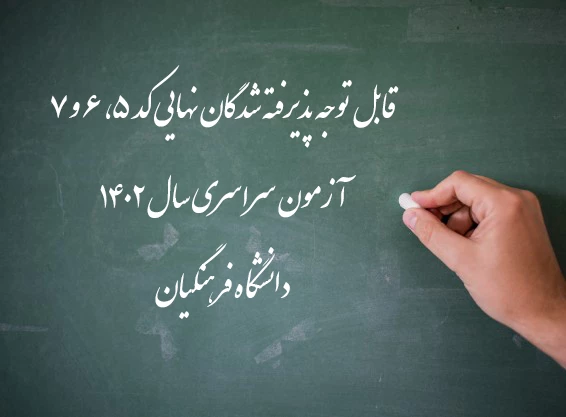 قابل توجه پذیرفته شدگان نهایی کد ۵، ۶ و ۷
آزمون سراسری سال ۱۴۰۲
دانشگاه فرهنگیان